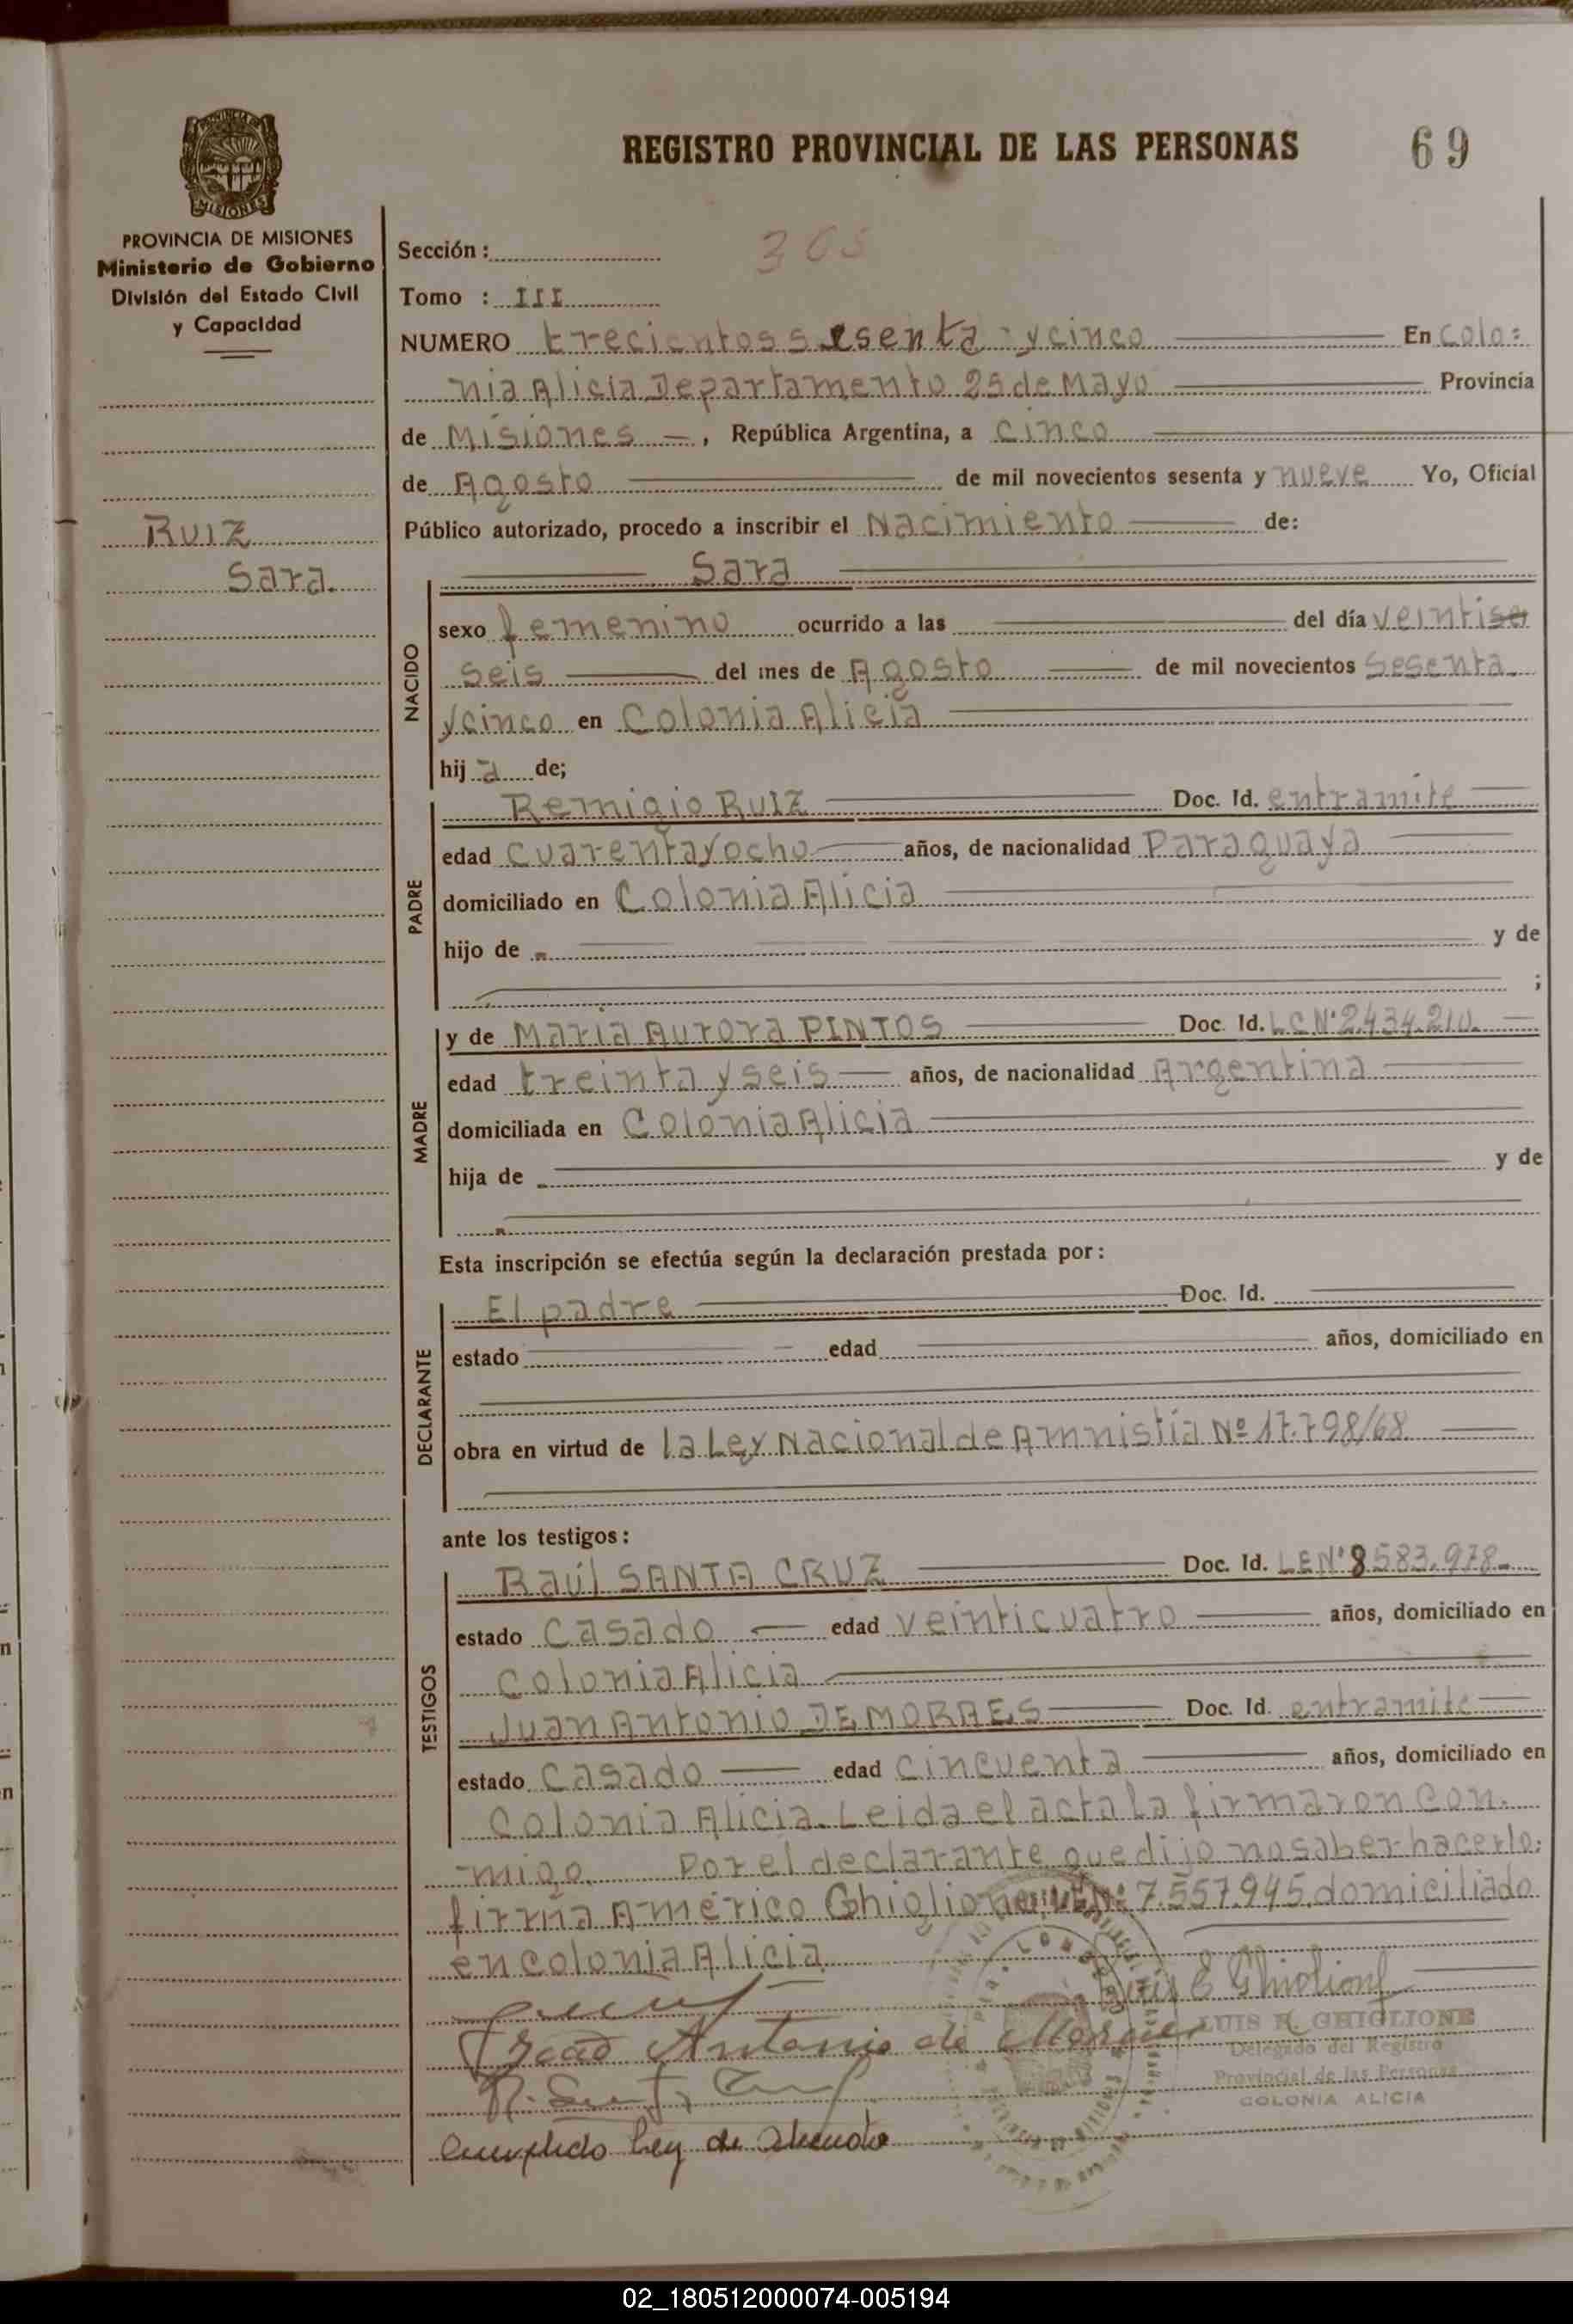 REGISTRO PROVINCIAL DE LAS PERSONAS
69
PROVINCIA DE MISIONES
Ministerio de Gobierno
División del Estado Civil
y Capacidad
Ruiz
Sara.
Sección :
365
Tomo : III
NUMERO trecientos sesenta y cinco En Colo=
nia Alicia Departamento 25 de Mayo Provincia
de Misiones , República Argentina, a cinco
de Agosto de mil novecientos sesenta y nueve Yo, Oficial
Público autorizado, procedo a inscribir el Nacimiento de:
Sara
NACIDO
sexo femenino ocurrido a las del día veinti
seis del mes de Agosto de mil novecientos sesenta
y cinco en Colonia Alicia
hij a de;
PADRE
Remigio RUIZ Doc. Id. en tramite
edad cuarenta y ocho años, de nacionalidad Paraguaya
domiciliado en Colonia Alicia
hijo de y de
;
MADRE
y de Maria Aurora PINTOS Doc. Id. LC Nº 2.434.210.
edad treinta y seis años, de nacionalidad Argentina
domiciliada en Colonia Alicia
hija de y de
Esta inscripción se efectúa según la declaración prestada por :
DECLARANTE
El padre Doc. Id.
estado edad años, domiciliado en
obra en virtud de la Ley Nacional de Amnistia Nº 17.798/68
ante los testigos :
TESTIGOS
Raúl SANTA CRUZ Doc. Id. LE Nº 8583.978
estado casado edad veinticuatro años, domiciliado en
Colonia Alicia
Juan Antonio DE MORAES Doc. Id. en tramite
estado casado edad cincuenta años, domiciliado en
Colonia Alicia. Leida el acta la firmaron con-
migo. Por el declarante que dijo no saber hacerlo:
firma Américo Ghiglione, LE Nº 7.557.945, domiciliado
en colonia Alicia
Luis E Ghiglione
LUIS E. GHIGLIONE
João Antonio de Moraes
Delegado del Registro
Provincial de las Personas
COLONIA ALICIA
R. Santa Cruz
Cumplido Ley de
02_180512000074-005194